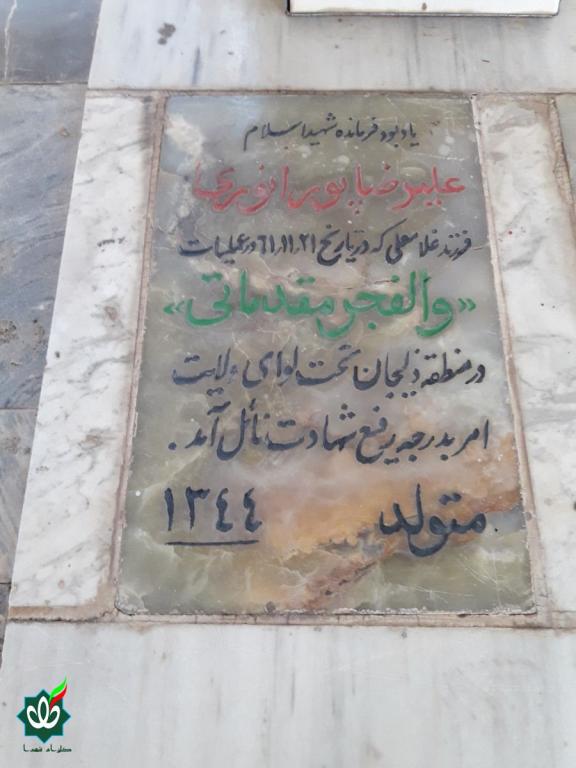 یادبود فرمانده شهید اسلام
علیرضا پور انوری
فرزند غلامعلی که در تاریخ ۶۱٫۱۱٫۲۱ در عملیات
«والفجر مقدماتی»
در منطقه ذلیجان تحت لوای ولایت
امر بدرجه رفیع شهادت نائل آمد .
متولد ۱۳۴۴
گلزار شهدا